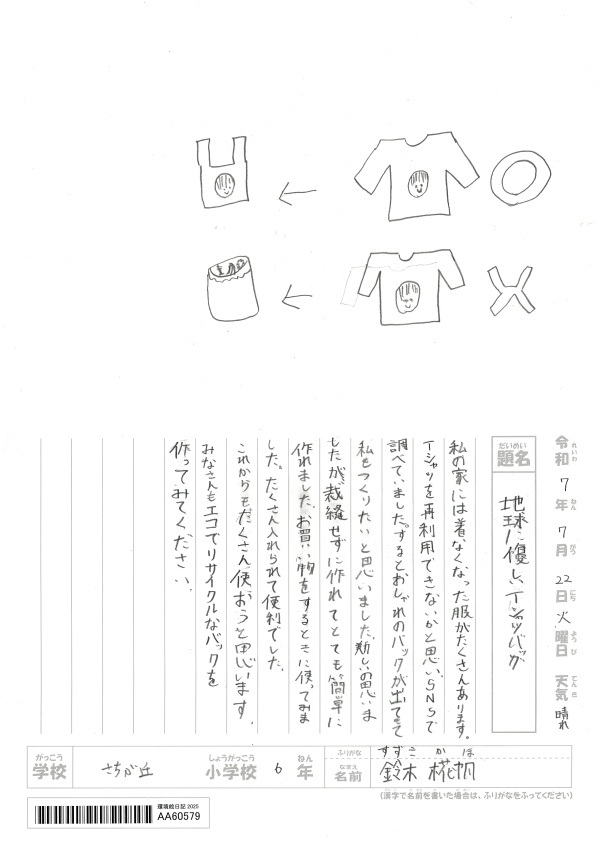 令和 7年 7月 22日 火曜日 天気 晴れ
れいわ ねん がつ にち ようび てんき
だいめい
題名 地球に優しいTシャツバッグ
私の家には着なくなった服がたくさんあります。
Tシャツを再利用できないかと思いSNSで
調べていました。するとおしゃれのバックが出てきて
私もつくりたいと思いました。難しいの思いま
したが、裁縫せずに作れてとても簡単に
作れました。お買い物をするときに使ってみま
した。たくさん入れられて便利でした。
これからもたくさん使おうと思います。
みなさんもエコでリサイクルなバックを
作ってみてください。
がっこう しょうがっこう ねん ふりがな すずき かほ
学校 さちが丘 小学校 6年 なまえ 名前 鈴木 椛帆
(漢字で名前を書いた場合は、ふりがなをふってください)
環境絵日記 2025
AA60579